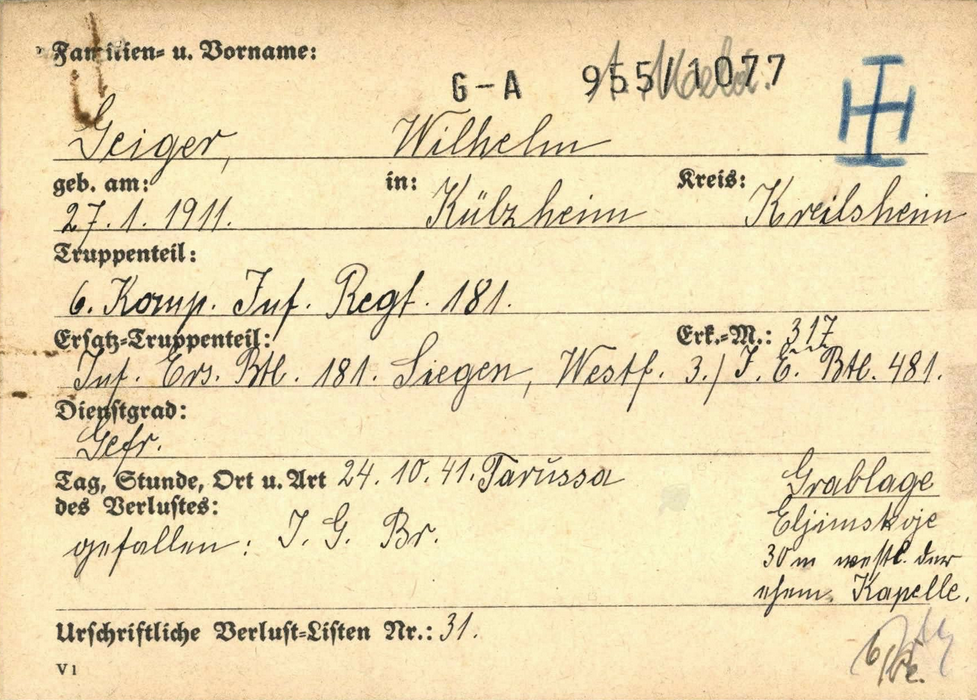 Familien- u. Vorname:
G-A 955/1077
Geiger, Wilhelm
geb. am: in: Kreis:
27.1.1911. Külzheim Kreilsheim
Truppenteil:
6. Komp. Inf. Regt. 181.
Ersatz-Truppenteil: Erk.-M.: 317
Inf. Ers. Btl. 181. Siegen, Westf. 3./ I. E. Btl. 481.
Dienstgrad:
Gefr.
Tag, Stunde, Ort u. Art 24.10.41. Tarussa
des Verlustes:
gefallen: I. G. Br.
Grablage
Eljimskoje
30 m westl. der
ehem. Kapelle.
Urschriftliche Verlust-Listen Nr.: 31.
V1